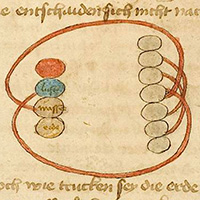 entschaiden sich nicht nac
lufft
wasser
erde
och wie trucken sey die erde